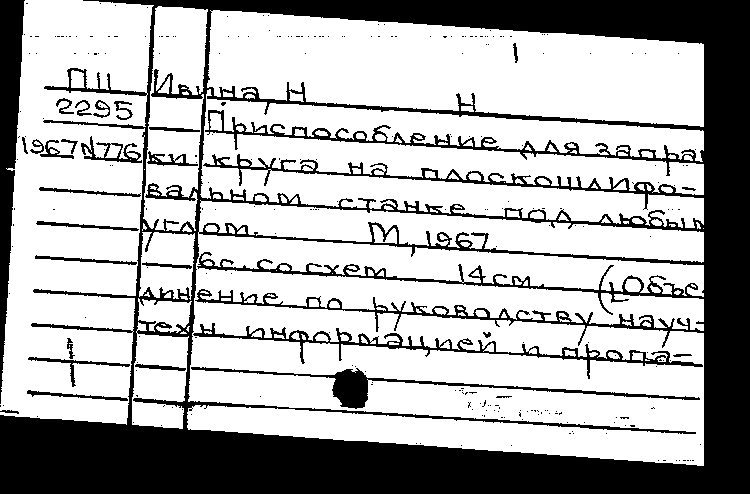 1
П11 Ивина, Н Н
2295
Приспособление для заправ
1967 N776 ки круга на плоскошлифо=
вальном станке под любым
углом. М., 1967.
6с. со схем. 14 см. (Объе-
динение по руководству науч=
техн. информацией и пропа=